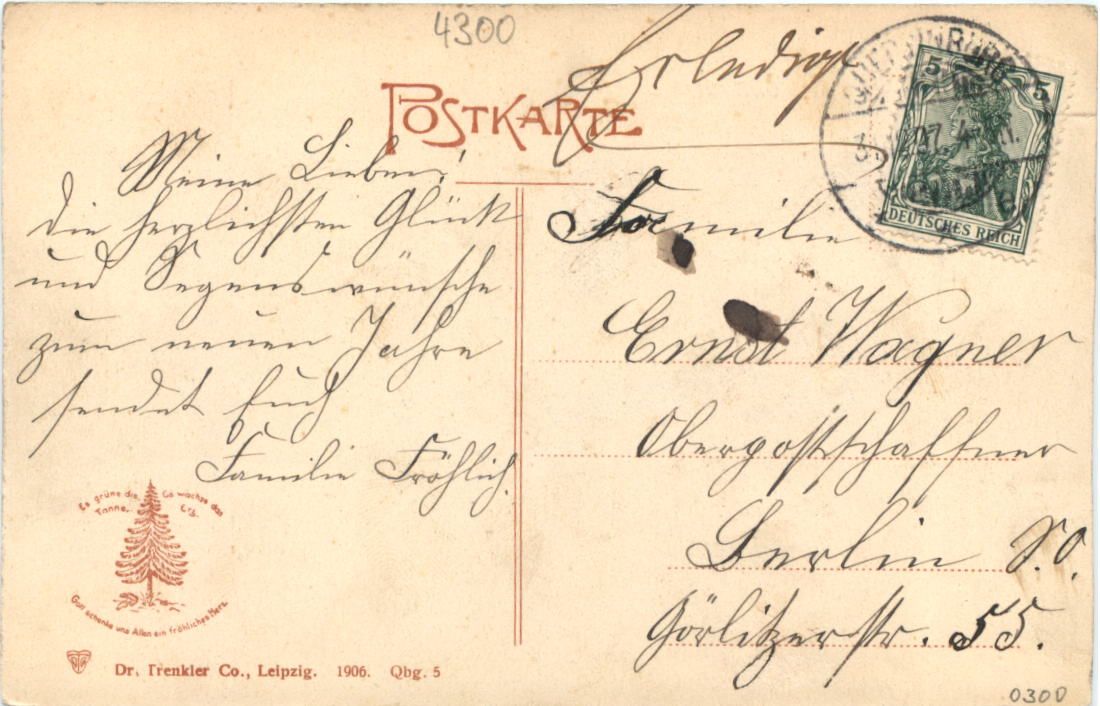 4300
Erledigt
POSTKARTE
5 5
DEUTSCHES REICH
Meine Lieben!
Die herzlichsten Glück
und Segenswünsche
zum neuen Jahre
sendet Euch
Familie Fröhlich.
Familie
Ernst Wagner
Oberpostschaffner
Berlin S.O.
Görlitzerstr. 55.
Es grüne die Tanne,
Es wachse das Erz,
Gott schenke uns Allen ein fröhliches Herz.
Dr. Trenkler Co., Leipzig. 1906. Qbg. 5
0300